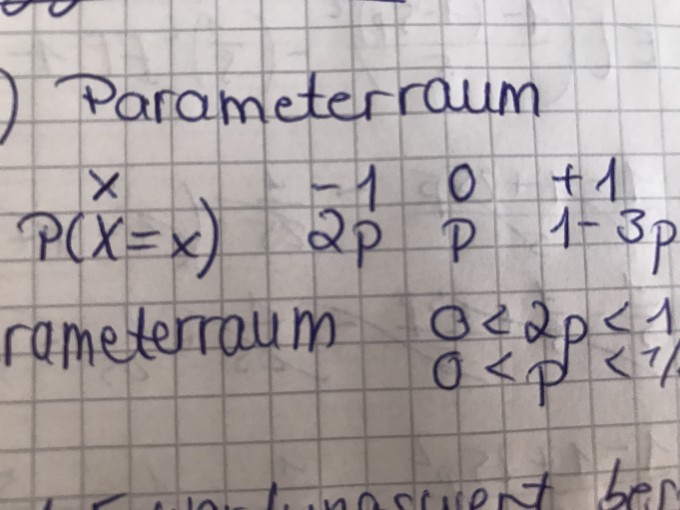 ) Parameterraum
x -1 0 +1
P(X=x) 2p p 1-3p
rameterraum 0<2p<1
0<p<1/
ber